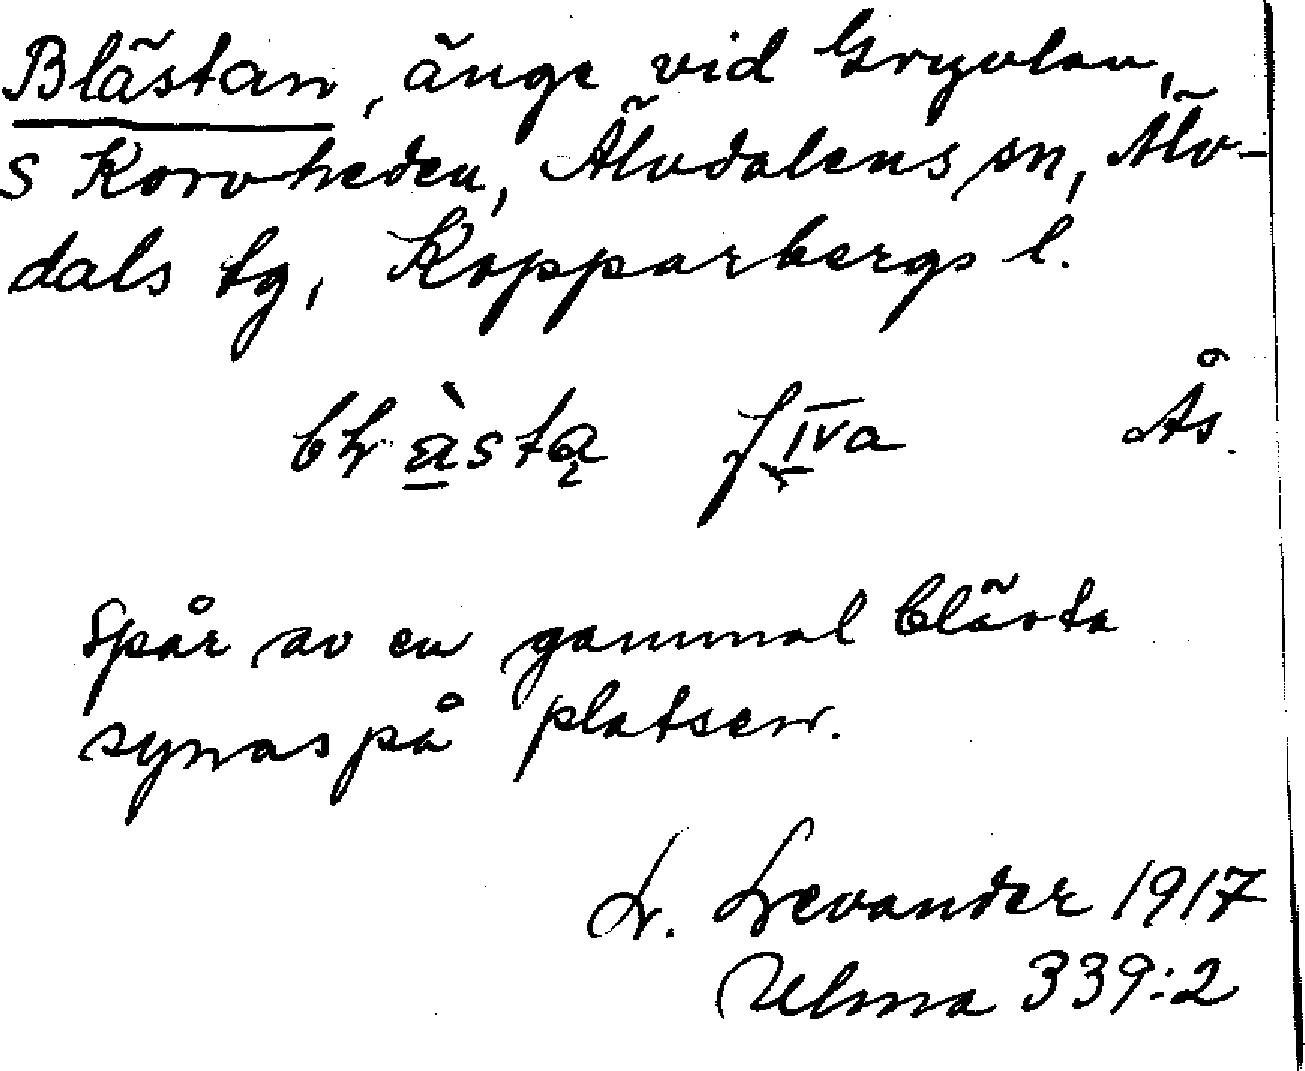 Blästan, änge vid Gryvlan,
S Korvheden, Älvdalens sn, Älv-
dals tg, Kopparbergs l.
f IVa Ås.
Spår av en gammal blästa
synas på platsen.
L. Levander 1917
Ulma 339:2